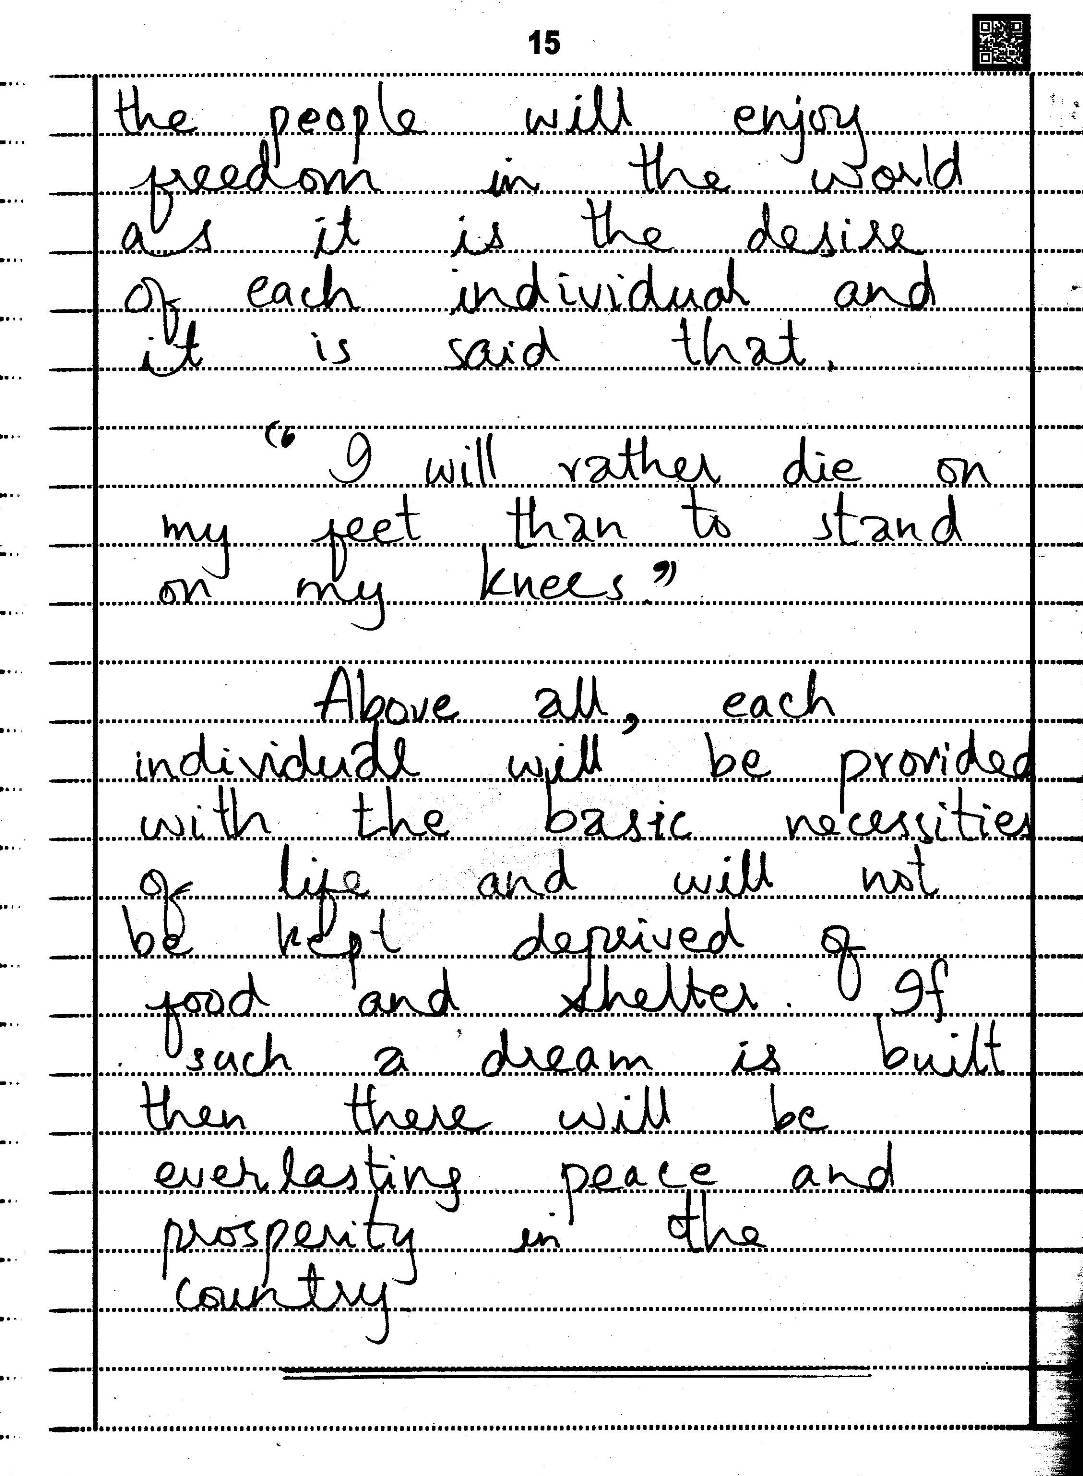 15
the people will enjoy
freedom in the world
as it is the desire
of each individual and
it is said that.
“I will rather die on
my feet than to stand
on my knees.”
Above all, each
individual will be provided
with the basic necessities
of life and will not
be kept deprived of
food and shelter. If
such a dream is built
then there will be
everlasting peace and
prosperity in the
country